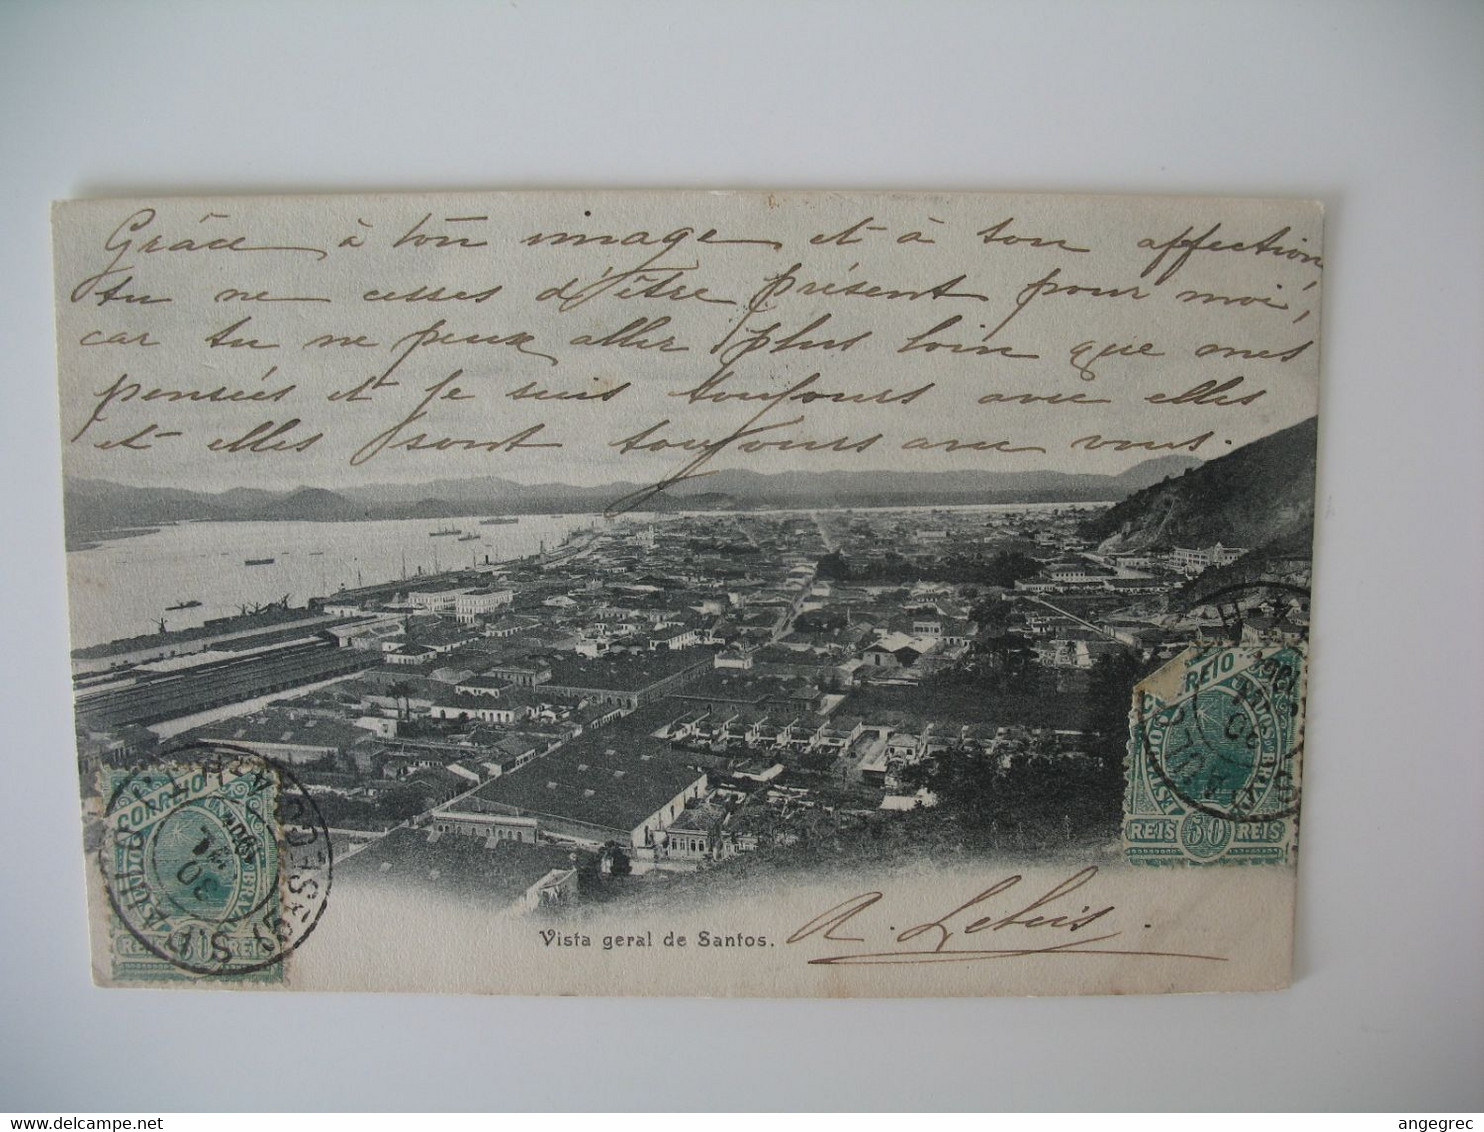 Grâce à ton image et à ton affection
tu ne cesses d'être présent pour moi,
car tu ne peux aller plus loin que mes
pensées et je suis toujours avec elles
et elles sont toujours avec vous.
Vista geral de Santos.
A.
CORREIO
REIS 50 REIS
CORREIO
REIS 50 REIS
30
30
www.delcampe.net
angegrec